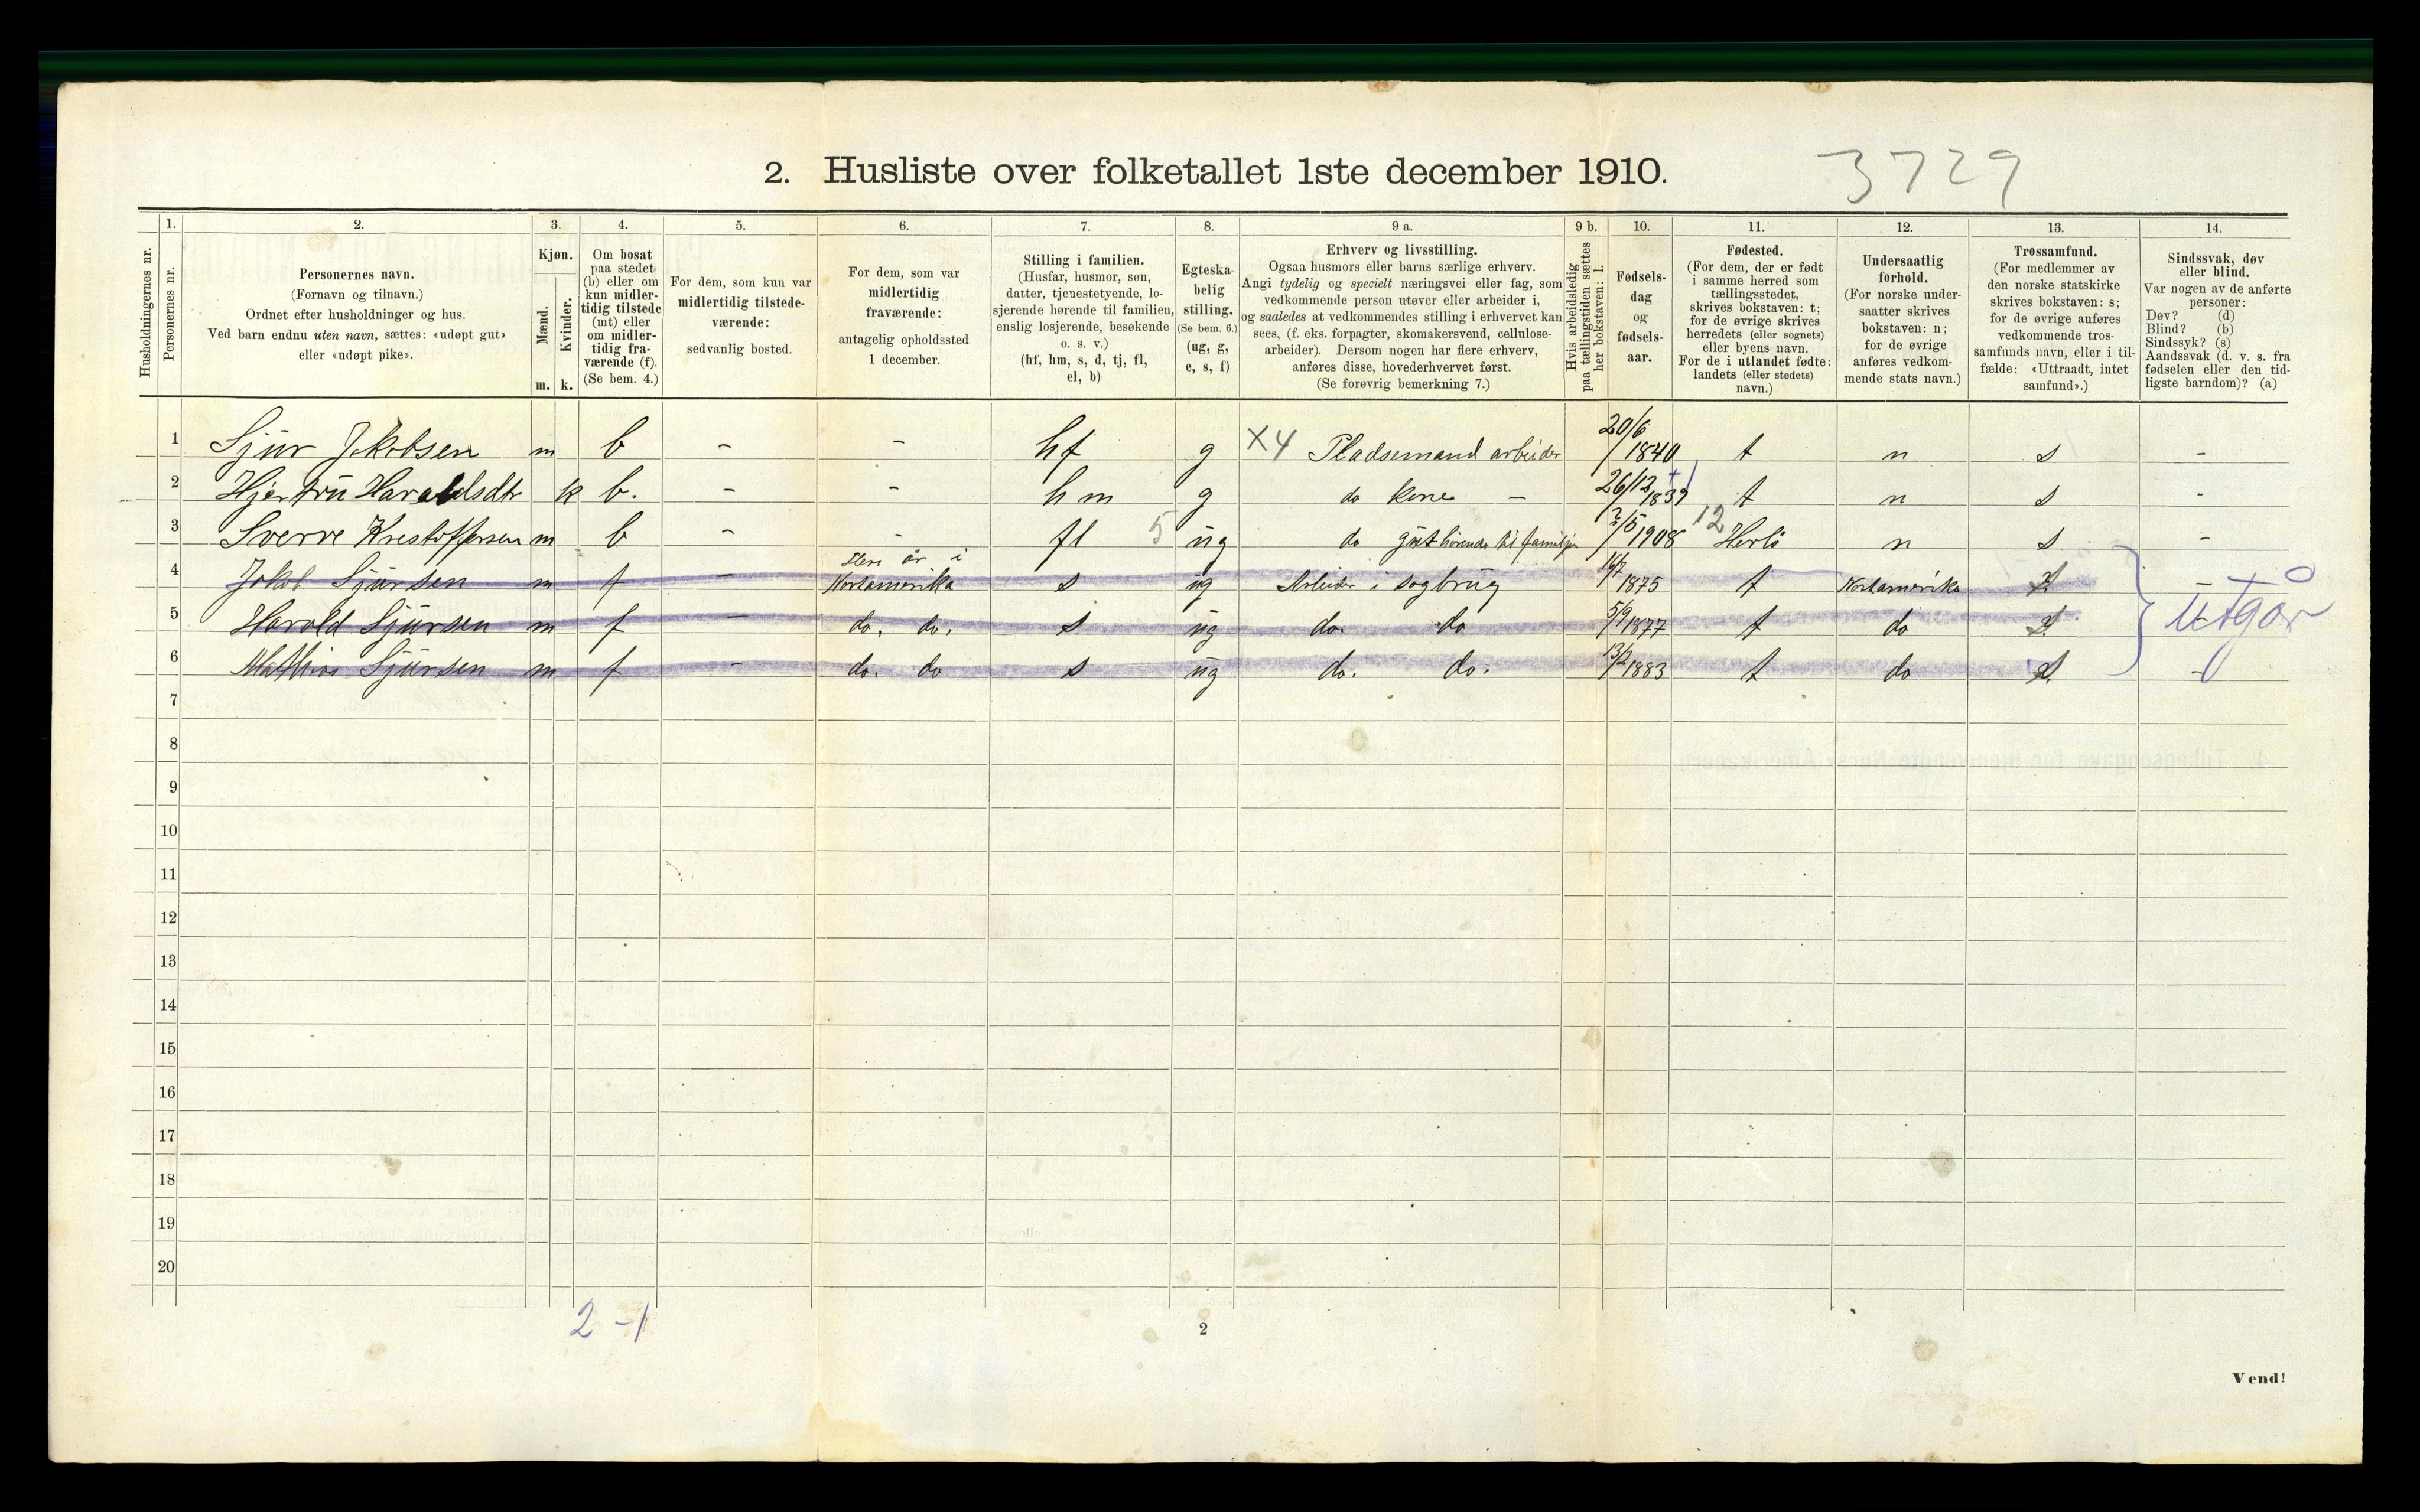 2. Husliste over folketallet 1ste december 1910.
3729
Husholdningernes nr.
1. Personernes nr.
2. Personernes navn. (Fornavn og tilnavn.) Ordnet efter husholdninger og hus. Ved barn endnu uten navn, sættes: «udøpt gut» eller «udøpt pike».
3. Kjøn. Mænd. m. Kvinder. k.
4. Om bosat paa stedet (b) eller om kun midlertidig tilstede (mt) eller om midlertidig fraværende (f). (Se bem. 4.)
5. For dem, som kun var midlertidig tilstedeværende: sedvanlig bosted.
6. For dem, som var midlertidig fraværende: antagelig opholdssted 1 december.
7. Stilling i familien. (Husfar, husmor, søn, datter, tjenestetyende, losjerende hørende til familien, enslig losjerende, besøkende o. s. v.) (hf, hm, s, d, tj, fl, el, b)
8. Egteskabelig stilling. (Se bem. 6.) (ug, g, e, s, f)
9 a. Erhverv og livsstilling. Ogsaa husmors eller barns særlige erhverv. Angi tydelig og specielt næringsvei eller fag, som vedkommende person utøver eller arbeider i, og saaledes at vedkommendes stilling i erhvervet kan sees, (f. eks. forpagter, skomakersvend, cellulosearbeider). Dersom nogen har flere erhverv, anføres disse, hovederhvervet først. (Se forøvrig bemerkning 7.)
9 b. Hvis arbeidsledig paa tællingstiden sættes her bokstaven: l.
10. Fødselsdag og fødselsaar.
11. Fødested. (For dem, der er født i samme herred som tællingsstedet, skrives bokstaven: t; for de øvrige skrives herredets (eller sognets) eller byens navn. For de i utlandet fødte: landets (eller stedets) navn.)
12. Undersaatlig forhold. (For norske undersaatter skrives bokstaven: n; for de øvrige anføres vedkommende stats navn.)
13. Trossamfund. (For medlemmer av den norske statskirke skrives bokstaven: s; for de øvrige anføres vedkommende trossamfunds navn, eller i tilfælde: «Uttraadt, intet samfund».)
14. Sindssvak, døv eller blind. Var nogen av de anførte personer: Døv? (d) Blind? (b) Sindssyk? (s) Aandssvak (d. v. s. fra fødselen eller den tidligste barndom)? (a)
1 Sjur Jakobsen m b - - hf g X4 Pladsemand arbeider 20/6 1840 t n s -
2 Hjertru Haraldsdtr k b. - - hm g do kone - 26/12 1839 t n s -
3 Sverre Krestoffersen m b - - fl 5 ug do gut hörende til familjen 2/5 1908 12 Herlö n s -
4 Jakob Sjursen m f - flere år i Nortamerika s ug Arbeider i sagbrug 16/7 1875 t Nortamerika s -
5 Harald Sjursen m f - do. do. s ug do. do 5/9 1877 t do s
6 Mathias Sjursen m f - do. do s ug do. do. 13/2 1883 t do s -
utgår
7
8
9
10
11
12
13
14
15
16
17
18
19
20
2 - 1
2
Vend!